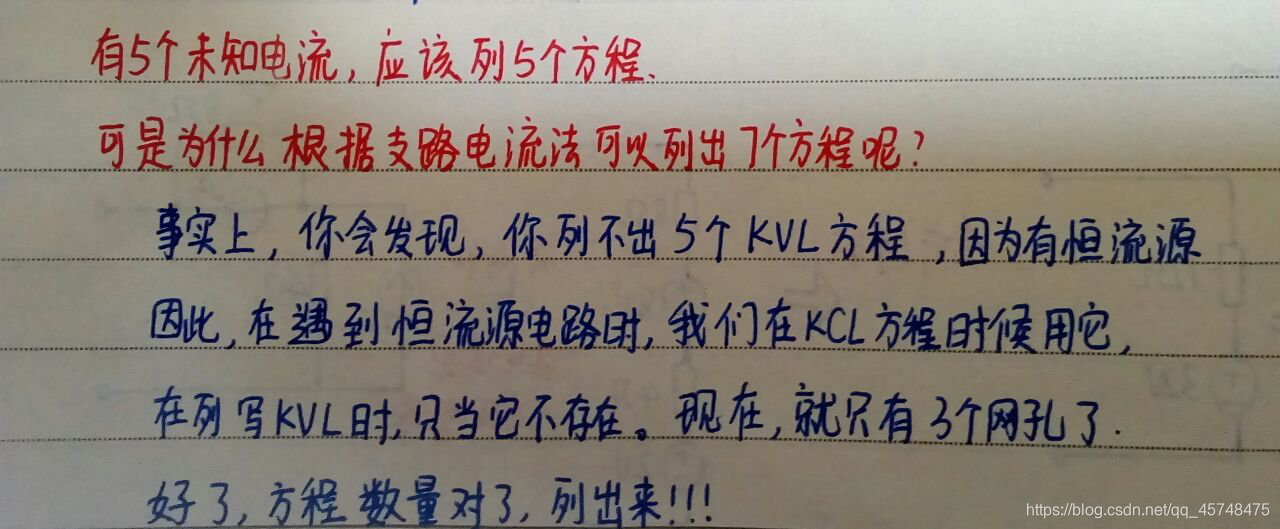 有5个未知电流，应该列5个方程.
可是为什么根据支路电流法可以列出7个方程呢？
事实上，你会发现，你列不出5个KVL方程，因为有恒流源
因此，在遇到恒流源电路时，我们在KCL方程时候用它，
在列写KVL时，只当它不存在。现在，就只有3个网孔了.
好了，方程数量对了，列出来!!!
https://blog.csdn.net/qq_45748475